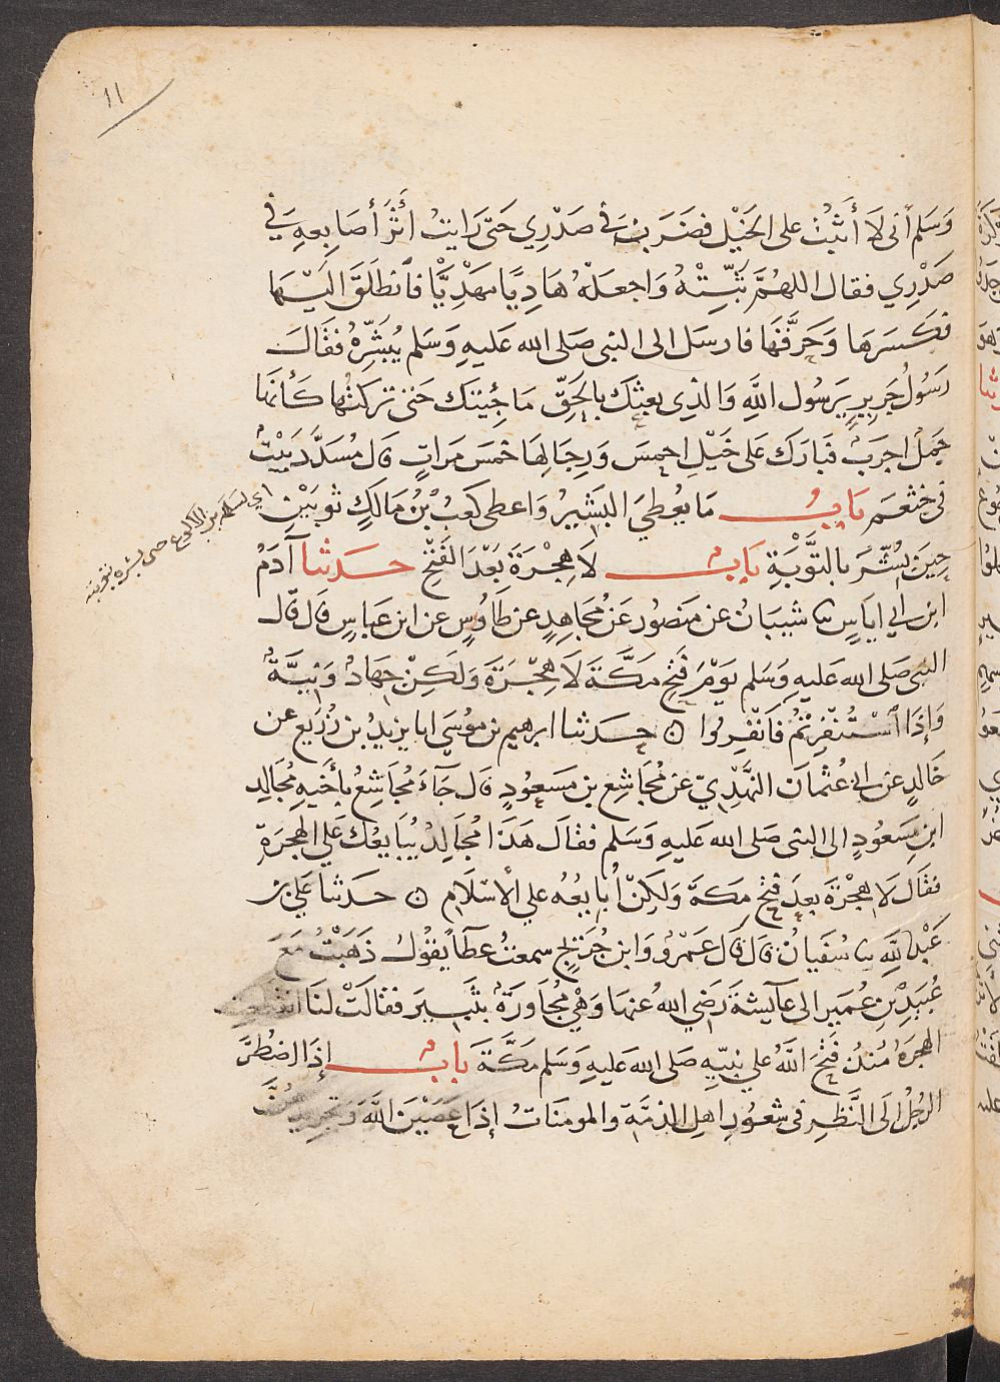 ١١
وَسَلم أنى لَا أَثْبُتُ على الخَيْل فضَرَبَ فى صَدْرِي حَتى رَايتُ أثَرَ أصَابِعِهِ في
صَدْرِي فقال اللهُمَّ ثَبِّتْهُ وَاجعَلهُ هَادِيًا مَهْدِيًّا فانطلَقَ اليْهَا
فكسَرَهَا وَحَرَّقَهَا فارسَل الى النبى صَلى الله عَليهِ وَسَلم يُبَشِّرُهُ فقَالَ
رَسُولُ جَرِيرٍ يَرَسُول اللَّهِ وَالذِى بعثكَ بالحَقّ مَا جِئيتك حَتى تركتُها كَأَنهَا
جَمَلٌ اجرَبُ فبَارَكَ عَلى خَيْلِ احمِسَ وَرِجَالِهَا خمْسَ مَراتٍ قال مُسَدَّد بَيْتٌ
فى خثعَمَ بَابُ مَا يعُطِيَ البَشِيرُ وَاعطى كعَبُ بْنُ مَالكٍ ثوبَيْنِ
اي لسلمة بن الاكوع حين بشره بتوبته
حِينَ بُشّرَ بالتوَّبَةِ بَابُ لَا هِجْرَةَ بَعْدَ الفَتْحِ حَدثنا آدَمُ
ابن ابي اياسٍ نا شيبَانُ عن مَنصُور عَنْ مُجَاهِدٍ عن طَاوُسٍ عن ابن عَباسٍ قال قال
النبى صَلى الله عَليهِ وَسَلم يَوْمَ فَتْحِ مَكَّةَ لَا هِجْرَةَ وَلَكِنْ جِهَادٌ وَنِيَّةٌ
وَإِذَا اسْتُنْفِرْتُمْ فَانْفِرُوا ۞ حَدثنا ابرهيم بن مُوسَى انا يزيدُ بن زُرَيْع عن
خَالدٍ عن ابى عُثمانَ النَّهْدِيّ عَن مُجَاشِعِ بن مَسَعوُدٍ قال جَآءَ مُجَاشِعُ بأَخيهِ مُجَالِد
ابن مَسعُودٍ الى النبى صَلى الله عَليهِ وَسَلم فقالَ هَذَا مُجَالِدُ يُبَايعُك عَلَي الهجرَةِ
فقَال لَا هجْرَةَ بعدَ فتْحِ مَكة وَلَكِنْ أُبَايعُهُ علي الْاسْلَامِ ۞ حَدثنا عَلي بن
عَبْدِ اللَّهِ نا سُفيَانُ قال قال عَمْرٌو وَابن جُرَيْجٍ سمعتُ عطآً يقوُلُ ذَهَبْتُ مَعَ
عُبَيدِ بْنِ عُمَيرٍ الى عآئِشَةَ رَضي اللهُ عنهَا وَهْيَ مُجَاوِرَةٌ بثَبيرَ فقالَتْ لنَا انقطَعتِ
الهجرَةُ مُنذُ فَتَحَ اللَّهُ علي نبيّهِ صَلى الله عَليهِ وَسَلم مَكَّةَ بَابُ إذَا اضْطُرَّ
الرجُلُ الى النَّظرِ فى شعُوُرِ اهل الذمَّةِ والمومنَاتُ إذَا عَصَيْنَ اللَّهَ وَتجرِيدِهِنَّ